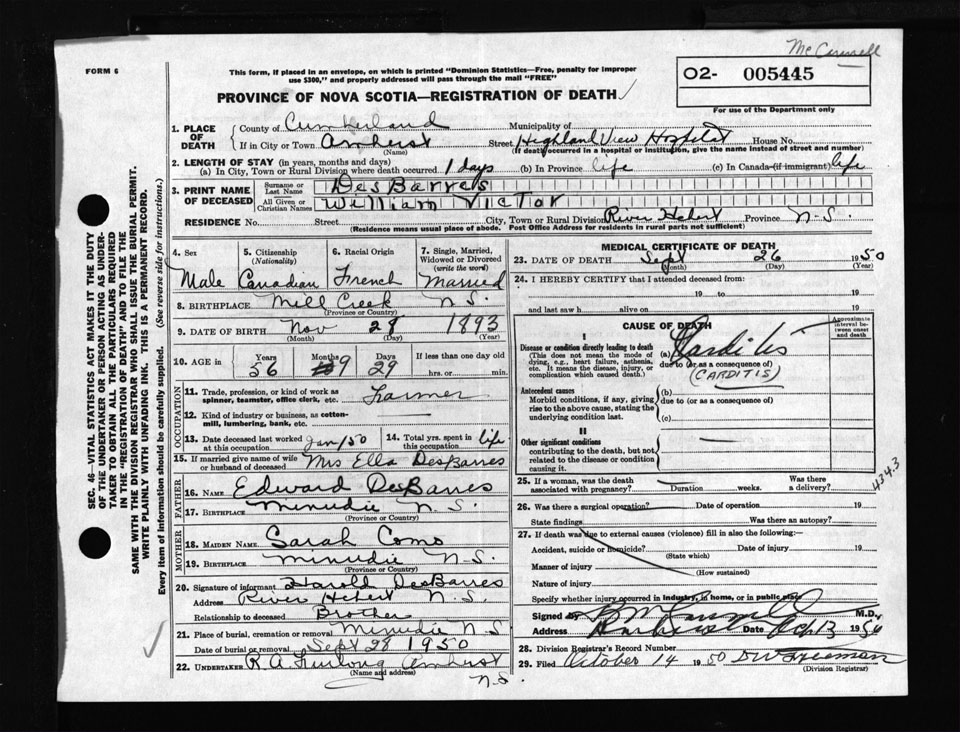 McCarnell
FORM 6
This form, if placed in an envelope, on which is printed "Dominion Statistics—Free, penalty for improper
use $300," and properly addressed will pass through the mail "FREE"
02- 005445
PROVINCE OF NOVA SCOTIA—REGISTRATION OF DEATH
For use of the Department only
SEC. 46—VITAL STATISTICS ACT MAKES IT THE DUTY
OF THE UNDERTAKER OR PERSON ACTING AS UNDER-
TAKER TO OBTAIN ALL THE PARTICULARS REQUIRED
IN THE "REGISTRATION OF DEATH" AND TO FILE THE
SAME WITH THE DIVISION REGISTRAR WHO SHALL ISSUE THE BURIAL PERMIT.
WRITE PLAINLY WITH UNFADING INK. THIS IS A PERMANENT RECORD.
Every item of information should be carefully supplied. (See reverse side for instructions.)
1. PLACE OF DEATH County of Cumberland Municipality of
If in City or Town Amherst Street Highland View Hospital House No.
(Name) (If death occurred in a hospital or institution, give the name instead of street and number)
2. LENGTH OF STAY (in years, months and days)
(a) In City, Town or Rural Division where death occurred 1 days (b) In Province life (c) In Canada (if immigrant) life
3. PRINT NAME OF DECEASED Surname or Last Name DesBarres
All Given or Christian Names William Victor
RESIDENCE No. Street City, Town or Rural Division River Hebert Province N.S.
(Residence means usual place of abode. Post Office Address for residents in rural parts not sufficient)
4. Sex 5. Citizenship (Nationality) 6. Racial Origin 7. Single, Married, Widowed or Divorced (write the word)
Male Canadian French Married
8. BIRTHPLACE Mill Creek N.S.
(Province or Country)
9. DATE OF BIRTH Nov 28 1893
(Month) (Day) (Year)
10. AGE in Years Months Days If less than one day old
56 9 29 hrs. or min.
OCCUPATION
11. Trade, profession, or kind of work as
spinner, teamster, office clerk, etc. Farmer
12. Kind of industry or business, as cotton-
mill, lumbering, bank, etc.
13. Date deceased last worked at this occupation Jan/50 14. Total yrs. spent in this occupation life
15. If married give name of wife or husband of deceased Mrs Ella DesBarres
FATHER
16. NAME Edward DesBarres
17. BIRTHPLACE Minudie N.S.
(Province or Country)
MOTHER
18. MAIDEN NAME Sarah Como
19. BIRTHPLACE Minudie N.S.
(Province or Country)
20. Signature of informant Harold DesBarres
Address River Hebert N.S.
Relationship to deceased Brother
21. Place of burial, cremation or removal Minudie N.S.
Date of burial or removal Sept 28 1950
22. UNDERTAKER R A Furlong Amherst
(Name and address) N.S.
MEDICAL CERTIFICATE OF DEATH
23. DATE OF DEATH Sept 26 1950
(Month) (Day) (Year)
24. I HEREBY CERTIFY that I attended deceased from:
19 to 19
and last saw h alive on 19
CAUSE OF DEATH
Approximate interval between onset and death
I
Disease or condition directly leading to death
(This does not mean the mode of
dying, e.g., heart failure, asthenia,
etc. It means the disease, injury, or
complication which caused death.)
(a) Carditis
due to (or as a consequence of)
(CARDITIS)
Antecedent causes
Morbid conditions, if any, giving
rise to the above cause, stating the
underlying condition last.
(b)
due to (or as a consequence of)
(c)
II
Other significant conditions
contributing to the death, but not
related to the disease or condition
causing it.
4343
25. If a woman, was the death associated with pregnancy? Duration weeks. Was there a delivery?
26. Was there a surgical operation? Date of operation 19
State findings Was there an autopsy?
27. If death was due to external causes (violence) fill in also the following:
Accident, suicide or homicide? Date of injury 19
(State which)
Manner of injury
(How sustained)
Nature of injury
Specify whether injury occurred in industry, in home, or in public place
Signed by M.D.
Address Amherst Date Oct 13 1950
28. Division Registrar's Record Number
29. Filed October 14 1950
(Division Registrar)